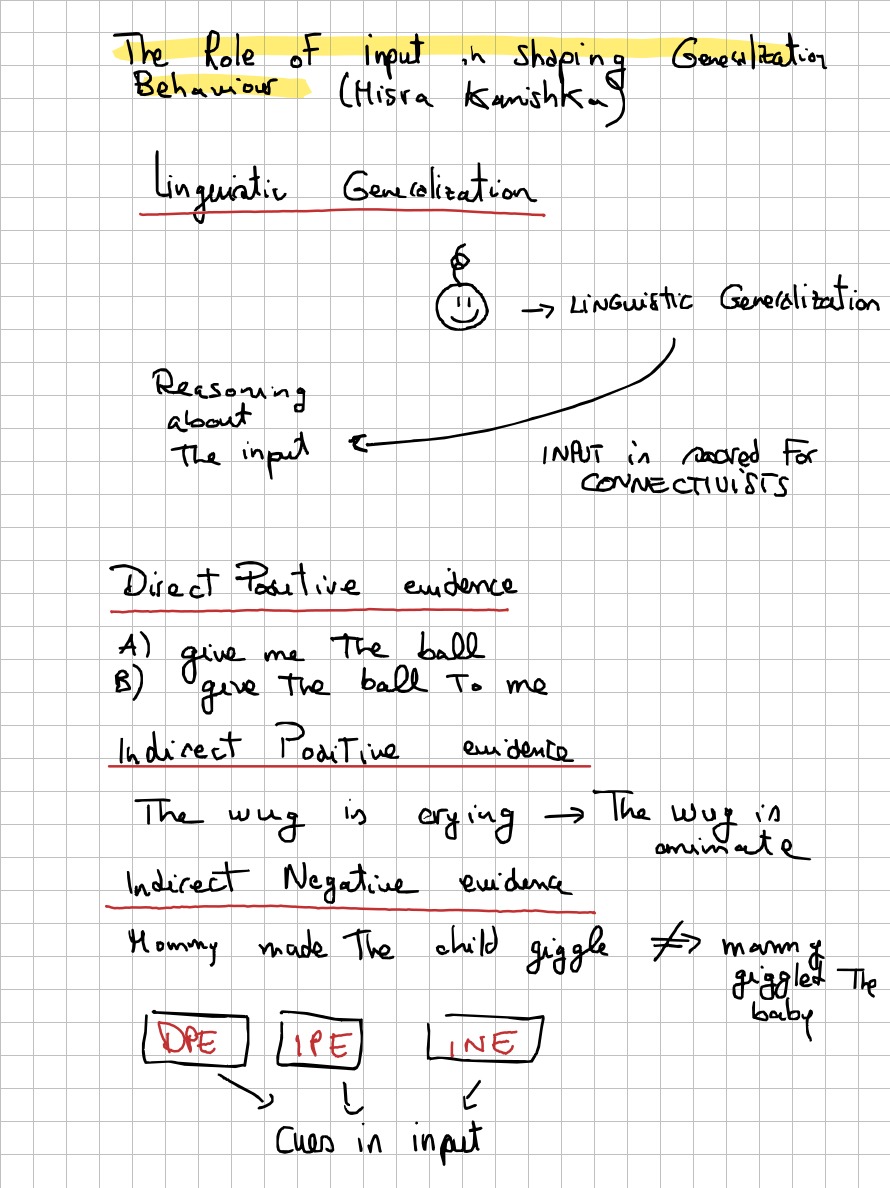 The Role of input in shaping Generalization
Behaviour (Misra Kanishka)
Linguistic Generalization
→ LINGUISTIC Generalization
Reasoning
about
The input
INPUT is sacred For
CONNECTIVISTS
Direct Positive evidence
A) give me The ball
B) give The ball To me
Indirect Positive evidence
The wug is crying → The wug is
animate
Indirect Negative evidence
Mommy made The child giggle ≠> mammy
giggled The
baby
DPE IPE INE
Cues in input